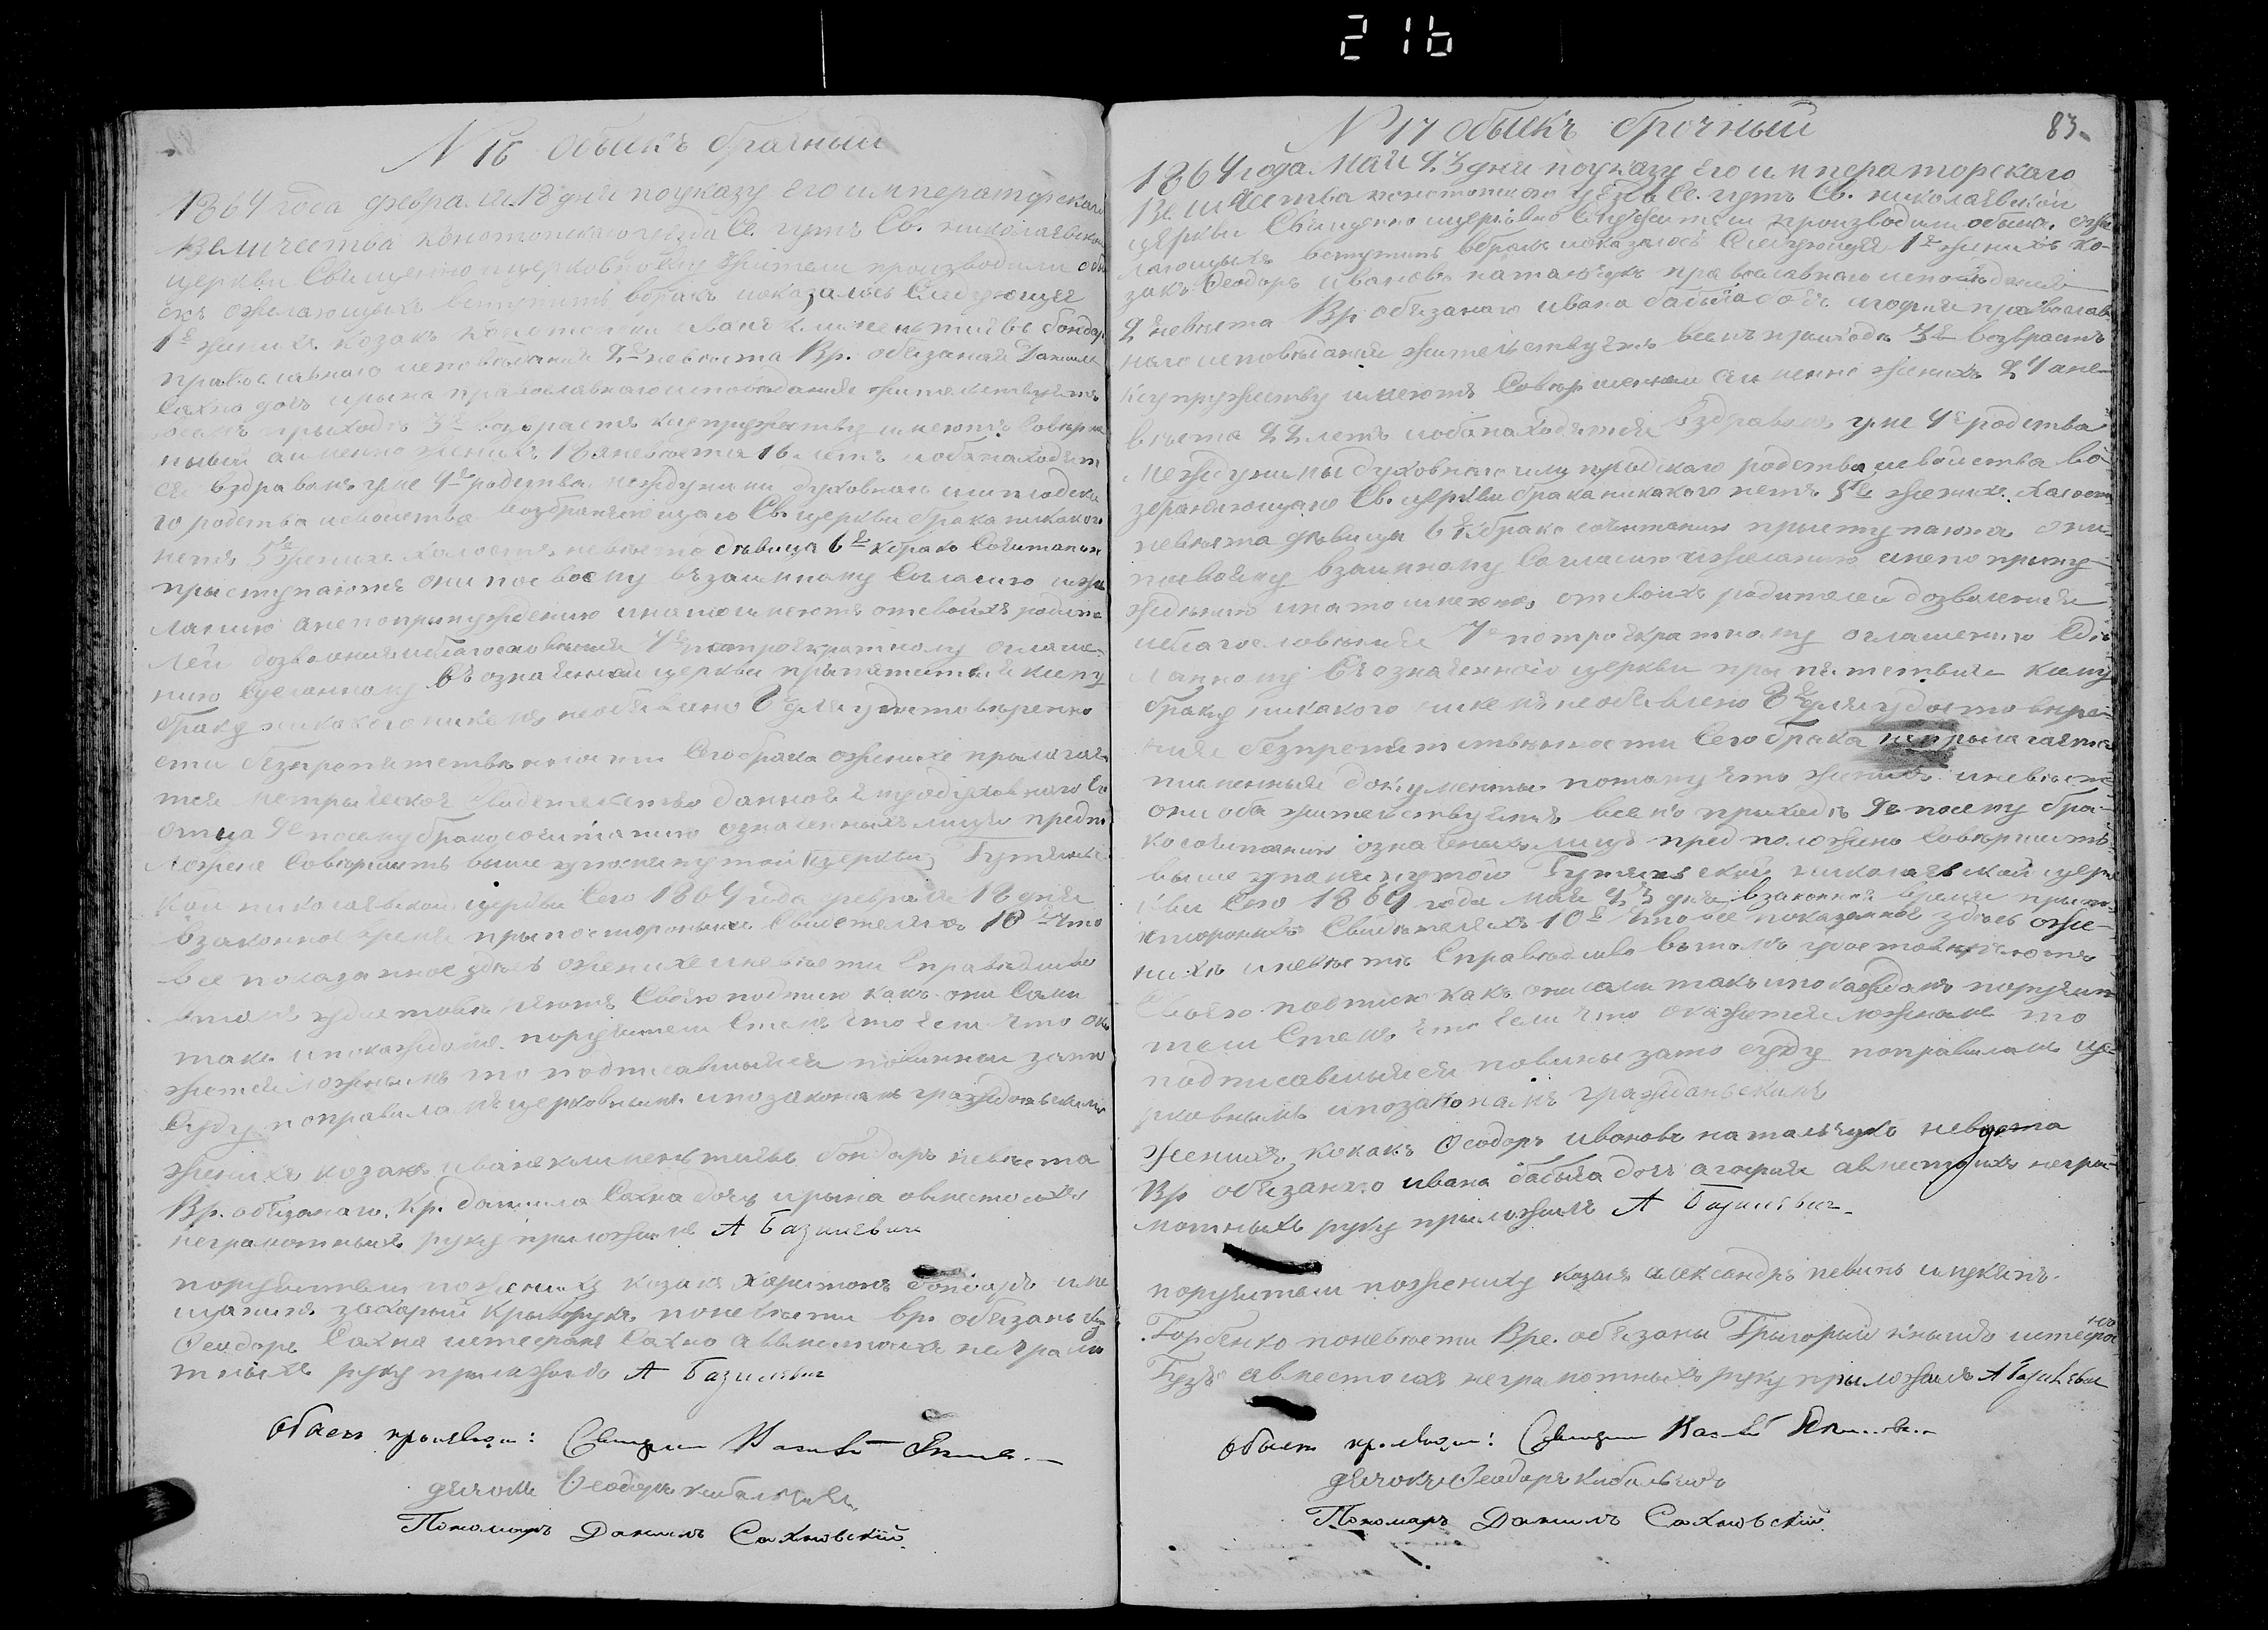 216
N 16 Обыскъ брачный
1864 года февраля 18 дня поуказу Его императорскаго
величества конотопскаго уезда С. гутъ Св. николаевской
церкви Священно ицерковно служители производили обы
скъ ожелающихъ вступить вбракъ показалось Следующея
1е женихъ козакъ иванъ климентиевъ бондаръ
православнаго исповеданія 2е невеста Вр. обязаной данила
Сахна дочъ ирына православнаго исповеданія жительствуютъ
всемъ приходе 3е возрастъ ксупружеству имеютъ Соверше
нный аименно женихъ 18 аневеста 16 летъ иоба находят
ся вздравомъ уме 4е родства между ими духовнаго или плодска
го родства исвойства возбраняющаго Св. церкви брака никакого
нетъ 5е женихъ холостъ невеста девица 6е кбрако Сочитанию
приступаютъ они посвоему взаимному Согласию ижа
ланию анепопринуждению инато имеютъ отсвоихъ родите
лей дозволения иблагословения 7е потроекратному оглаше
нию Сделанному въозначенной церкви препятствия ксему
браку никакого никемъ необявлено 8е для удостоверенно
сти безпрепятственности Сего брака ожених прилагает
ся метрическое Свидетельство данное
отца 9е посему брако сочитанию означенныхъ лицъ предпо
ложено Совершить выше упомянутой церкви Гутянс
кой николаевской церкви Сего 1864 года февраля 18 дня
взаконное время припосторонихъ Свидетеляхъ 10е Что
все показанное здесь ожених иневести Справедливо
втомъ удостоверяютъ Своею подписю какъ они Сами
такъ ипокаждомъ поручители Стемъ что если что ока
жется ложнымъ то подписавшыйся повинны зато
Суду поправиламъ церковнымъ ипозаконамъ гражданскимъ
женихъ козакъ иванъ климентиевъ бондаръ невеста
Вр. обязанаго Кр. данила Сахна дочъ ирына авместо ихъ
неграмотныхъ руку приложилъ А Базилевич
поручители пожениху козакъ харитонъ бондаръ име
щанинъ захарый криворукъ поневести вр. обязаны
Феодоръ Сахна истефанъ Сахно авместо ихъ неграмо
тныхъ руку приложилъ А Базилевич
Обыск производи: Священик
дячокъ Феодоръ кибальчичъ
Пономаръ Данилъ Сахновскій.
83
N 17 обыскъ брочный
1864 года мая 23 дня поуказу его императорскаго
Величества конотопскаго уезда С. гутъ Св. николаевской
церкви Священно ицерковно Служители производили обыск ожа
лающихъ вступить вбракъ показалось Следующея 1е женихъ ко-
закъ Феодоръ ивановъ натальчукъ православнаго исповеданія
2 невеста Вр обязанаго ивана бабыча дочъ агофия православ
наго исповеданія жительствуютъ всемъ приходе 3е возврастъ
ксупружеству имеютъ Совершенный аименно женихъ 24 ане-
веста 22 летъ иоба находятся вздравомъ уме 4е родства
между ими ны духовнаго или плодскаго родства исвойства во
збраняющаго Св. церкви брака никакого нетъ 5е женихъ Холостъ
невеста девица 6е кбрако сочитанию приступаютъ они
посвоему взаимному Согласию ижеланию анепо прыну
ждению инато имеютъ отсвоихъ родителей дозволения
иблагословения 7е потроекратному оглашению Сде
ланному въозначенного церкви препятствия Ксему
браку никакого никемъ необявлено 8е для удостовере-
ния безпрепятственности Сего брака неприлагается
писменный документы потому что женихъ иневеста
они оба жительствуютъ всемъ приходе 9е посему бра-
косочитанию означеныхъ лицъ предположено Совершить
выше упомянутой Гутянской николаевской церк
ви Сего 1864 года мая 23 дня взаконной время прыпо-
сторонихъ Свидетеляхъ 10е Что все показанное здесь оже-
нихъ иневесте Справедливо вътомъ удостоверяютъ
Своею подписю какъ они сами такъ ипокаждамъ поручи
тели Стемъ что если что окажется ложнымъ то
подписавшыйся повины зато суду поправиламъ це-
рковнымъ ипозаконамъ гражданскимъ
женихъ, кокакъ Феодоръ ивановъ натальчукъ невеста
Вр обязанаго ивана бабыча дочъ агофия авместо ихъ негра-
мотныхъ руку прыложилъ А Базилевич
поручители пожениху казакъ александръ певинъ илукянъ
Горбенко поневести Вре. обязаны Грыгорый кнышъ истефа
нъ
Гузъ авместо ихъ неграмотныхъ руку прыложилъ А Базилевич
Обыск производи: Священик
дячокъ Феодоръ кибальчичъ
Пономаръ Данилъ Сахновскій.